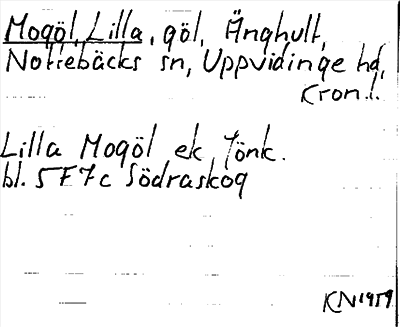 Mogöl, Lilla, göl, Änghult,
Nottebäcks sn, Uppvidinge hd,
Kron. l.
Lilla Mogöl ek Jönk.
bl. 5 F 7 c Södraskog
KN 1959